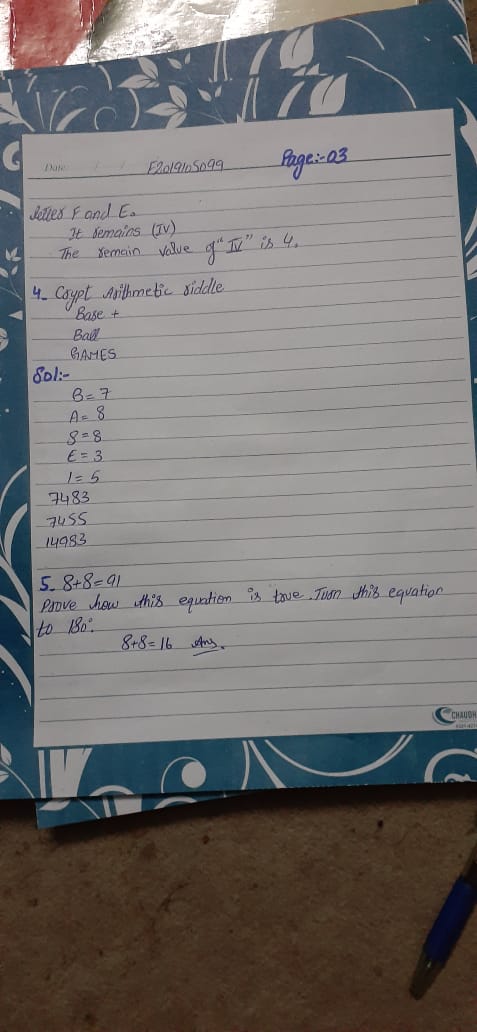 Date:
F2019105099
Page:-03
letter F and E.
It remains (IV)
The remain value of "IV" is 4.
4. Crypt Arithmetic riddle
Base +
Ball
GAMES
Sol:-
B = 7
A = 8
S = 8
E = 3
l = 5
7483
7455
14983
5. 8+8=91
Prove how this equation is true. Turn this equation
to 180°.
8+8=16 Ans.
CHAUDH